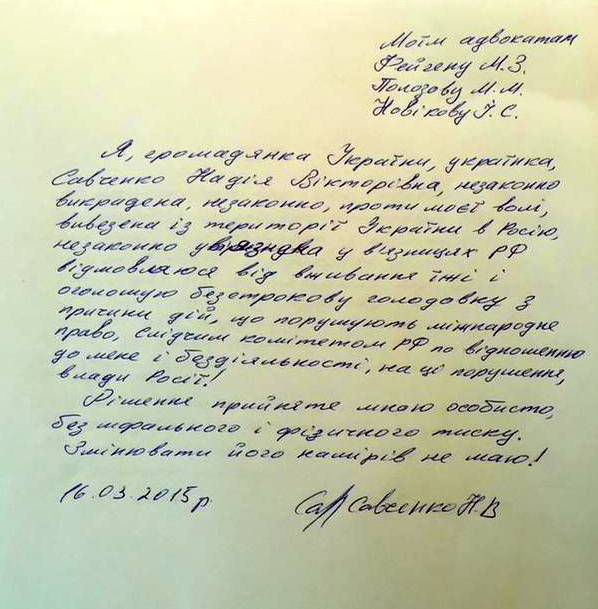 Моїм адвокатам
Фейгену М.З.
Полозову М.М.
Новікову І.С.
Я, громадянка України, українка,
Савченко Надія Вікторівна, незаконно
викрадена, незаконно, проти моєї волі,
вивезена із території України в Росію,
незаконно у в'язницях РФ
відмовляюся від вживання їжі і
оголошую безстрокову голодовку з
причини дій, що порушують міжнародне
право, Слідчим комітетом РФ по відношенню
до мене і бездіяльності, на ці порушення,
влади Росії!
Рішення прийняте мною особисто,
без морального і фізичного тиску.
Змінювати його намірів не маю!
16.03.2015 р.
Савченко Н.В